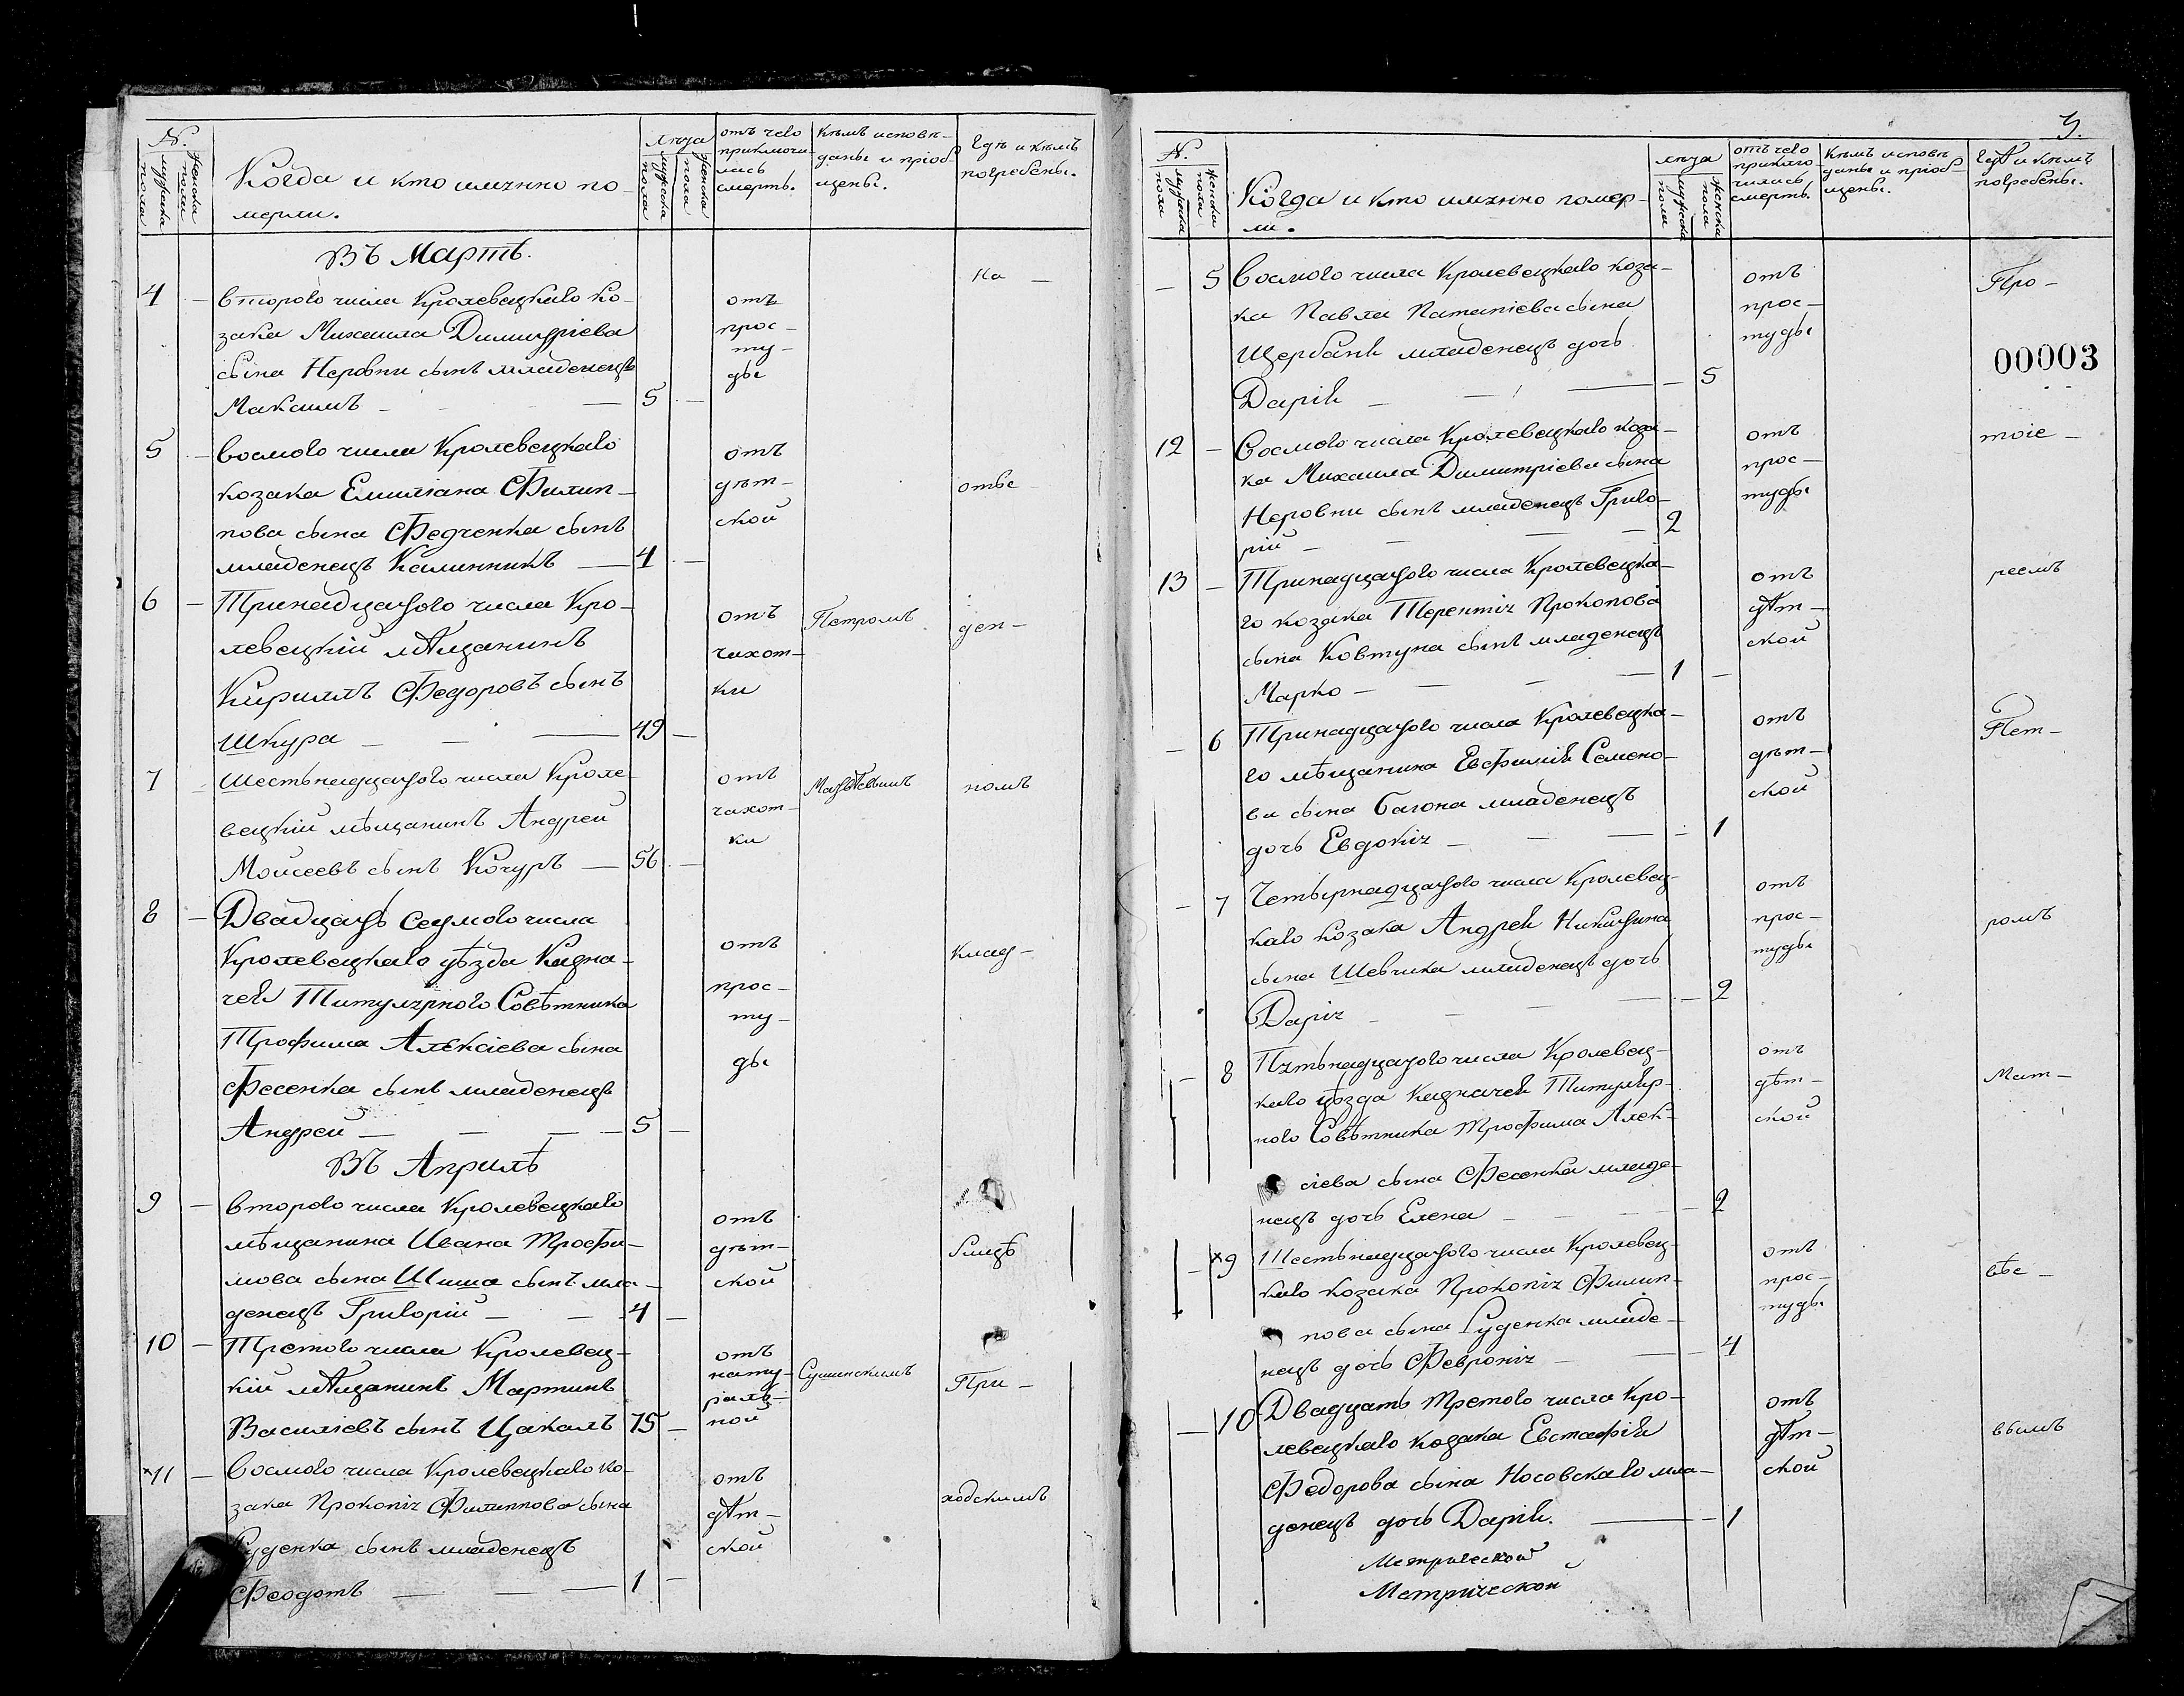 N.
мужеска пола
женска пола
Когда и кто имянно по-
мерли.
лѣта
мужеска пола
женска пола
отъ чего
приключи
лась
смерть.
Кѣмъ исповѣ-
даны и пріоб-
щены.
Гдѣ и кѣмъ
погребены.
Въ Мартѣ.
4 - второго числа Кролевецкаго ко-
зака Михаила Димитріева
сына Неровни сынъ младенецъ
Максимъ - - 5 -
отъ
прос-
ту-
ды
На -
5 - Восмого числа Кролевецкаго
козака Емиліана Филип-
пова сына Федченка сынъ
младенецъ Калинникъ - 4 -
отъ
дѣт-
ской
отве -
6 - Тринадцатого числа Кро-
левецкій мѣщанинъ
Кириллъ Федоровъ сынъ
Шкура - - - 49 -
отъ
чахот-
ки
Петромъ
ден-
7 - Шестьнадцатого числа Кроле-
вецкій мѣщанинъ Андрей
Моисеевъ сынъ Кочуръ - 56 -
отъ
чахот-
ки
Матвѣевымъ
номъ
8 - Двадцать седмого числа
Кролевецкаго уѣзда Казна-
чея Титулярного Совѣтника
Трофима Алексіева сына
Фесенка сынъ младенецъ
Андрей - - - 5 -
отъ
прос-
ту-
ды
клад-
Въ Априлѣ
9 - второго числа Кролевецкаго
мѣщанина Ивана Трофи-
мова сына Шиша сынъ мла-
денецъ Григорій - - 4 -
отъ
дѣт-
ской
бищѣ
10 - Третого числа Кролевец-
кій мѣщанинъ Мартинъ
Василіевъ сынъ Цакалъ 75 -
отъ
нату-
раль-
ной
Сушинскимъ
При -
х11 - Восмого числа Кролевецкаго ко-
зака Прокопія Филиппова сына
Руденка сынъ младенецъ
Феодотъ - - - 1 -
отъ
дѣт-
ской
ходскимъ
3.
N.
мужеска пола
женска пола
Когда и кто имянно помер-
ли.
лѣта
мужеска пола
женска пола
отъ чего
приклю-
чились
смерть.
Кѣмъ исповѣ
даны и пріоб-
щены.
Гдѣ и кѣмъ
погребены.
- 5 Восмого числа Кролевецкаго коза-
ка Павла Патапіева сына
Щербань младенецъ дочь
Дарія - - - - 5
отъ
прос-
туды
Про -
00003
12 - Восмого числа Кролевецкаго коза-
ка Михаила Димитріева сына
Неровни сынъ младенецъ Григо-
рій - - - 2
отъ
прос-
туды
тоіе -
13 - Тринадцатого числа Кролевецка-
го козака Терентія Прокопова
сына Ковтуна сынъ младенецъ
Марко - - - 1 -
отъ
дѣт-
ской
реемъ
- 6 Тринадцатого числа Кролевецка-
го мѣщанина Евфимія Семено-
ва сына Багона младенецъ
дочь Евдокія - - - 1
отъ
дѣт-
ской
Пет-
- 7 Четырнадцатого числа Кролевец-
каго козака Андрея Никитина
сына Шевчика младенецъ дочь
Дарія - - - - 2
отъ
прос-
туды
ромъ
- 8 Пятьнадцатого числа Кролевец-
каго уѣзда Казначея Титуляр-
ного Совѣтника Трофима Алек-
сіева сына Фесенка младе-
нецъ дочь Елена - - - 2
отъ
дѣт-
ской
Мат-
- х9 Шестьнадцатого числа Кролевец-
каго козака Прокопія Филип-
пова сына Руденка младе-
нецъ дочь Февронія - - - 4
отъ
прос-
туды
вѣе -
- 10 Двадцать третого числа Кро-
левецкаго козака Евстафія
Федорова сына Носовскаго мла-
денецъ дочь Дарія. - - 1
отъ
дѣт-
ской
вымъ
Метрической
Метрической